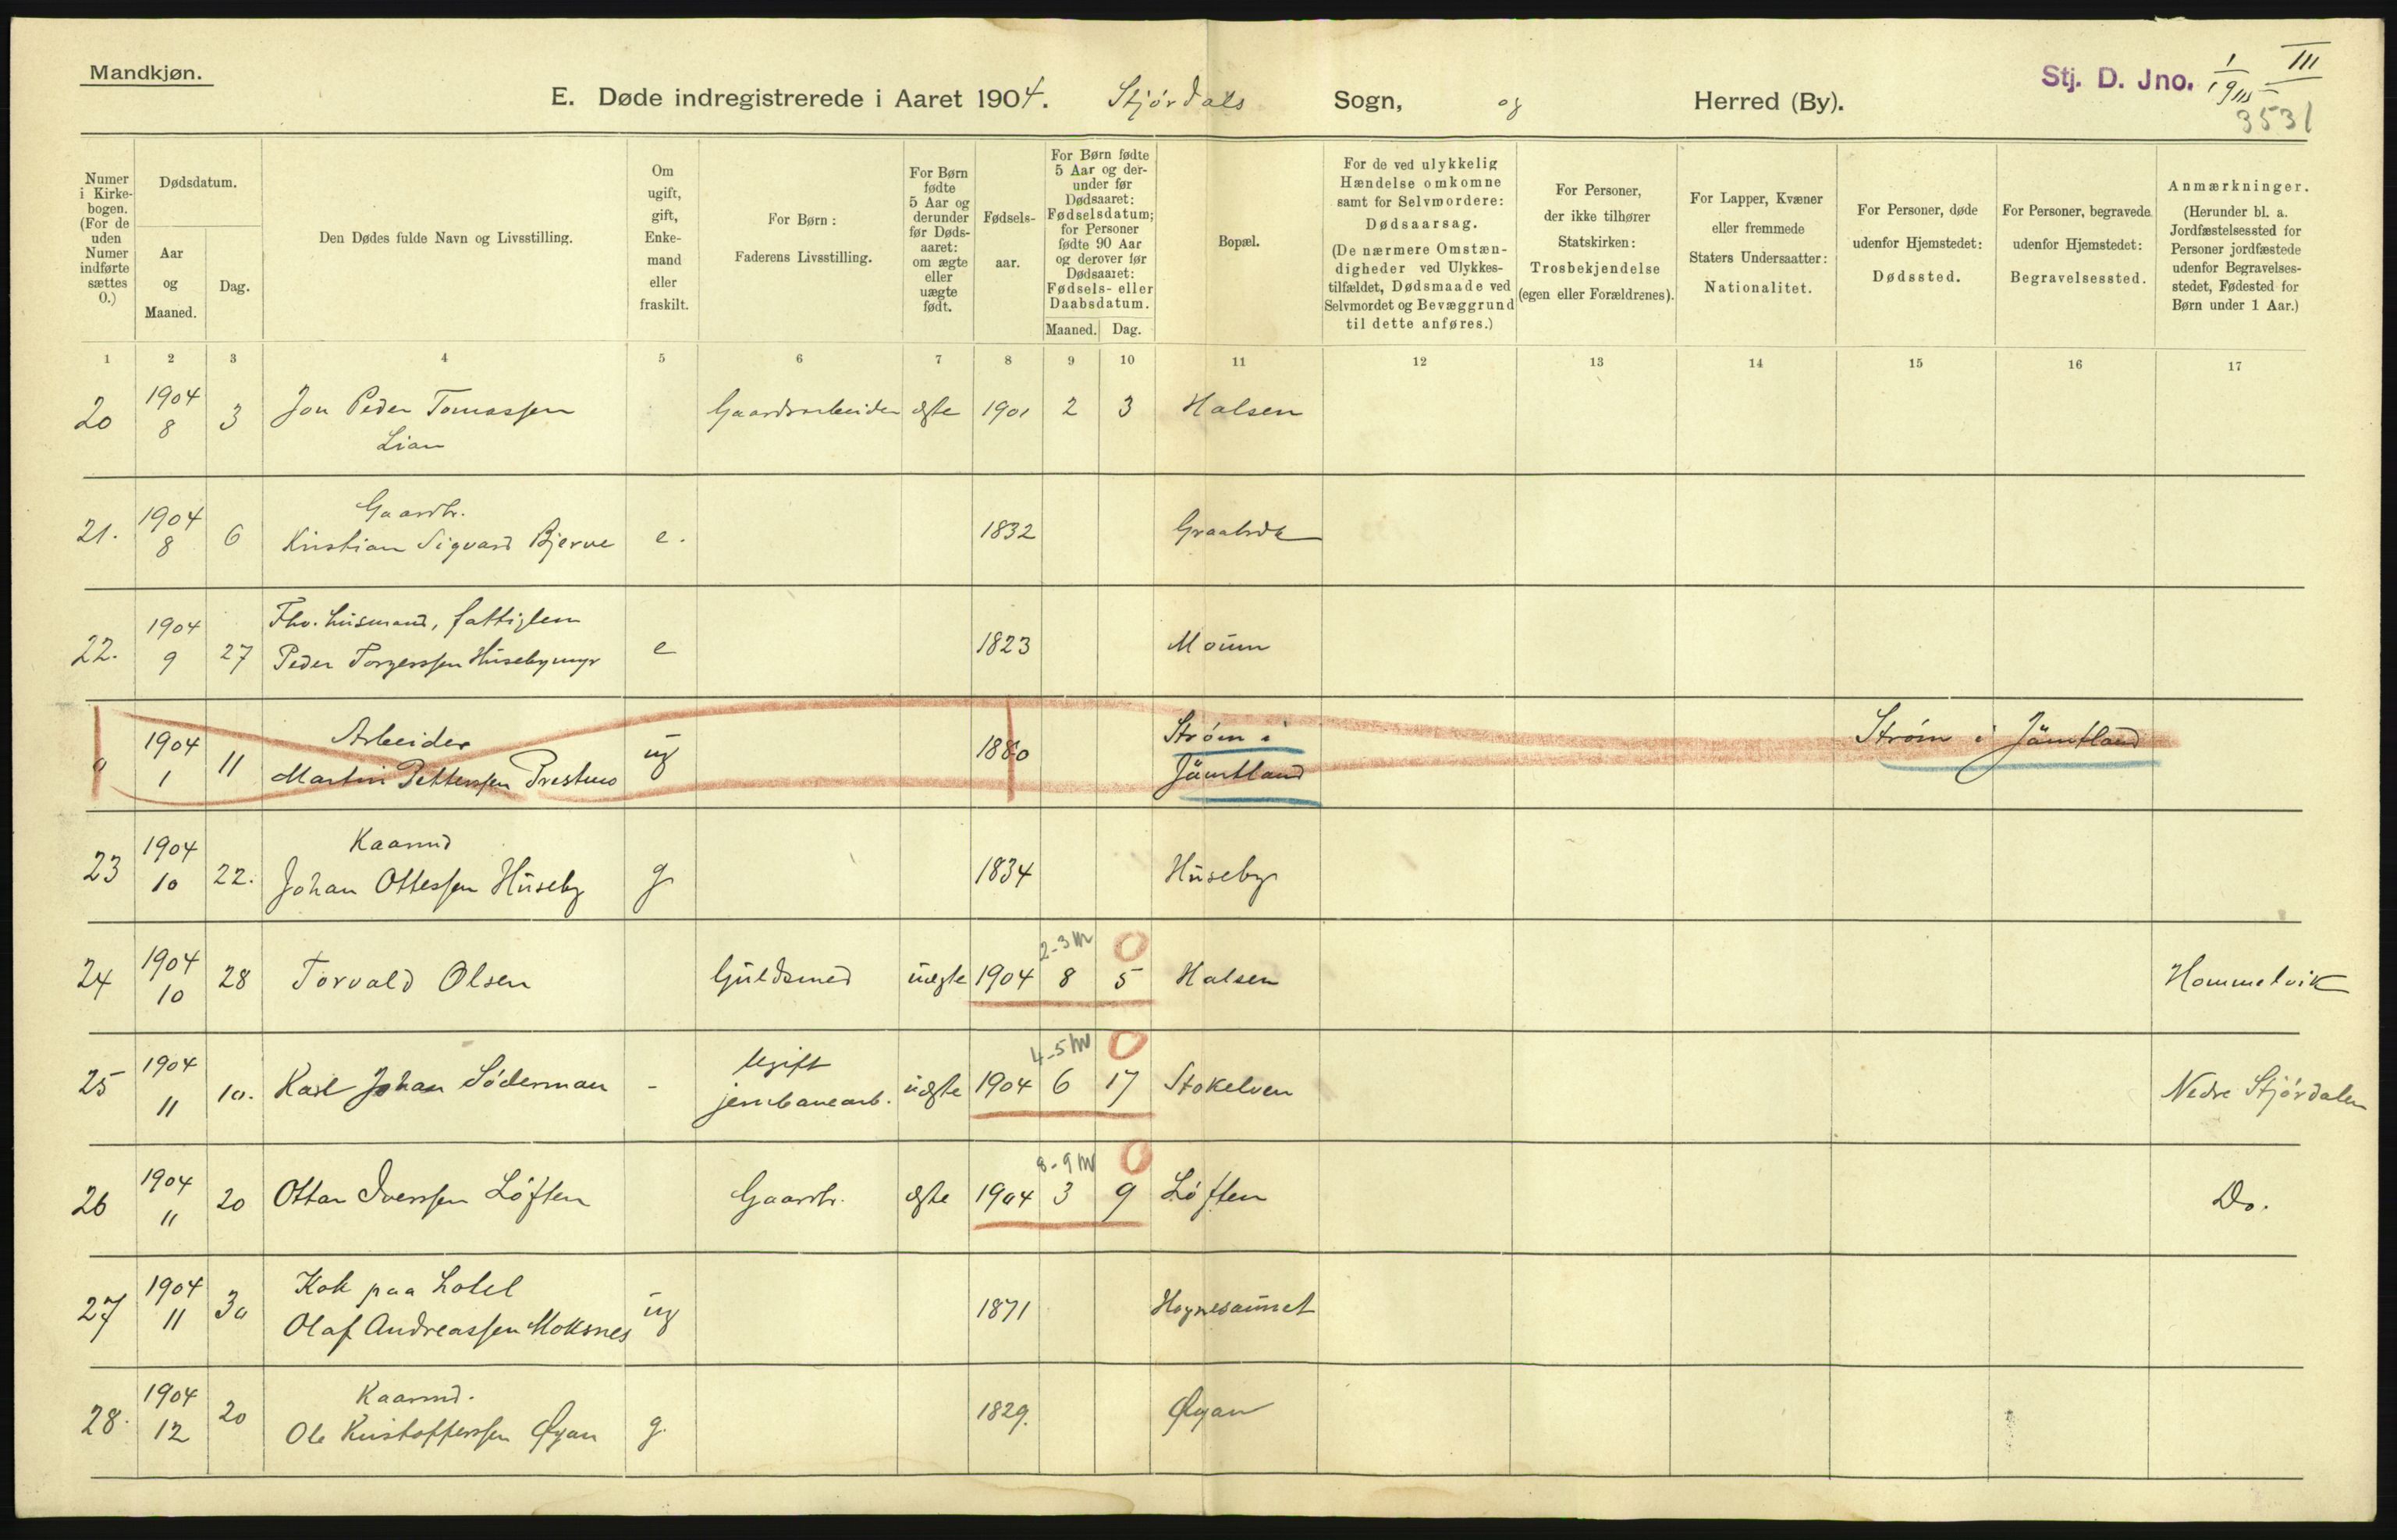 Mandkjøn.
E. Døde indregistrerede i Aaret 1904. Stjørdals Sogn, og Herred (By).
Stj. D. Jno. 1/1905 III
3531
Numer i Kirkebogen. (For de uden Numer indførte sættes 0.)
Dødsdatum.
Aar og Maaned.
Dag.
Den Dødes fulde Navn og Livsstilling.
Om ugift, gift, Enkemand eller fraskilt.
For Børn: Faderens Livsstilling.
For Børn fødte 5 Aar og derunder før Dødsaaret: om ægte eller uægte født.
Fødselsaar.
For Børn fødte 5 Aar og derunder før Dødsaaret: Fødselsdatum; for Personer fødte 90 Aar og derover før Dødsaaret: Fødsels- eller Daabsdatum.
Maaned. Dag.
Bopæl.
For de ved ulykkelig Hændelse omkomne samt for Selvmordere: Dødsaarsag. (De nærmere Omstændigheder ved Ulykkestilfældet, Dødsmaade ved Selvmordet og Bevæggrund til dette anføres.)
For Personer, der ikke tilhører Statskirken: Trosbekjendelse (egen eller Forældrenes).
For Lapper, Kvæner eller fremmede Staters Undersaatter: Nationalitet.
For Personer, døde udenfor Hjemstedet: Dødssted.
For Personer, begravede udenfor Hjemstedet: Begravelsessted.
Anmærkninger. (Herunder bl. a. Jordfæstelsessted for Personer jordfæstede udenfor Begravelsesstedet, Fødested for Børn under 1 Aar.)
1 2 3 4 5 6 7 8 9 10 11 12 13 14 15 16 17
20 1904 8 3 Jon Peder Tomassen Lian Gaardsarbeider ægte 1901 2 3 Halsen
21. 1904 8 6 Gaardbr. Kristian Sigvard Bjerve e. 1832 Graabræk
22. 1904 9 27 Fhv. husmand, fattiglem Peder Torgerssen Husebymyr e 1823 Moum
" 1904 1 11 Arbeider Martin Petterssen Prestmo ug 1880 Strøm i Jämtland Strøm i Jämtland
23 1904 10 22. Kaarmd Johan Ottessen Huseby g 1834 Huseby
2-3 M
24 1904 10 28 Torvald Olsen Guldsmed uægte 1904 8 5 Halsen Hommelvik
4-5 M
25 1904 11 10. Karl Johan Söderman - Ugift jernbanearb. uægte 1904 6 17 Stokelven Nedre Stjørdalen
8-9 M
26 1904 11 20 Ottar Iverssen Løften Gaardbr. ægte 1904 3 9 Løften Do.
27 1904 11 30 Kok paa hotel Olaf Andreassen Moksnes ug 1871 Hognesaunet
28. 1904 12 20 Kaarmd. Ole Kristofferssen Øyan g. 1829. Øyan